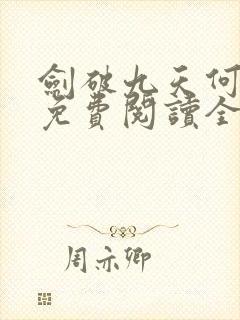 劍破九天何
免費閱讀全
周亦卿